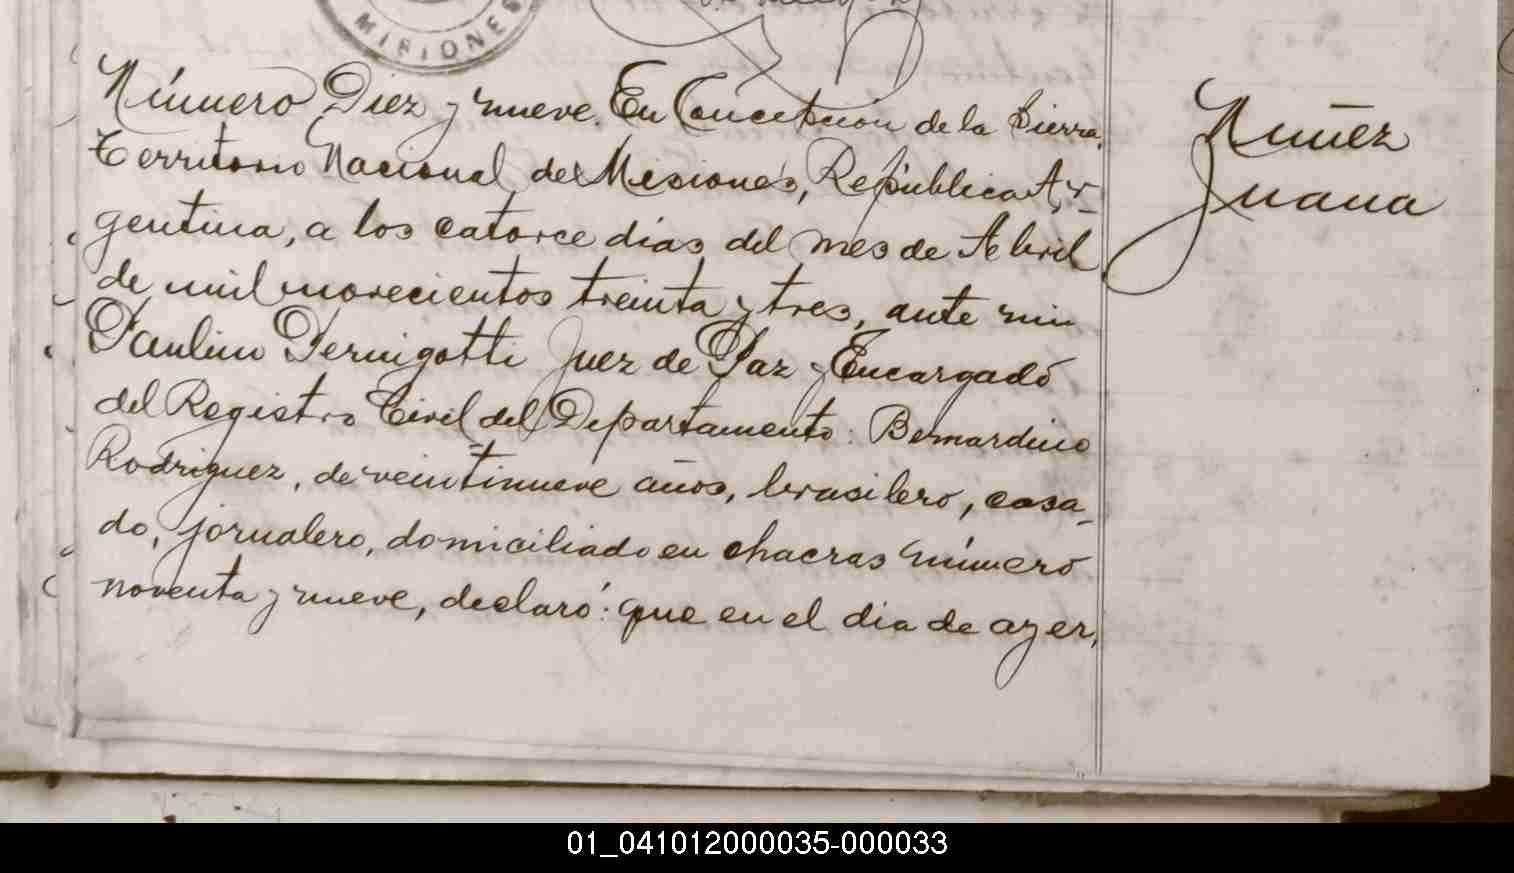 MISIONES
Número Diez y nueve. En Concepcion de la Sierra,
Territorio Nacional de Misiones, República Ar-
gentina, a los catorce dias del mes de Abril
de mil novecientos treinta y tres, ante mi
Paulino Pernigotti Juez de Paz y Encargado
del Registro Civil del Departamento: Bernardino
Rodriguez, de veintinueve años, brasilero, casa-
do, jornalero, domiciliado en chacras número
noventa y nueve, declaró: que en el dia de ayer,
Nuñez
Juana
01_041012000035-000033